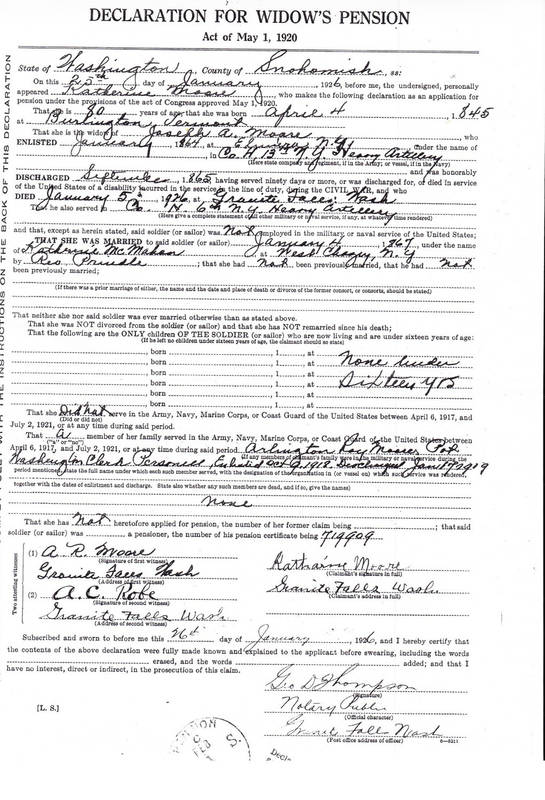 DECLARATION FOR WIDOW'S PENSION
Act of May 1, 1920
State of Washington, County of Snohomish, ss:
On this 25th day of January, 1926, before me, the undersigned, personally
appeared Katherine Moore, who makes the following declaration as an application for
pension under the provisions of the act of Congress approved May 1, 1920.
That she is 80 years of age; that she was born April 4, 1845
at Burlington, Vermont
That she is the widow of Joseph A. Moore, who
ENLISTED January, 1864, at N.Y., under the name of
in Co H 13th N.Y. Heavy Artillery
(Here state company and regiment, if in the Army; or vessel, if in the Navy)
and was honorably
DISCHARGED September, 1865, having served ninety days or more, or was discharged for, or died in service
of the United States of a disability incurred in the service in the line of duty, during the CIVIL WAR, and who
DIED January 5th, 1926, at Granite Falls, Wash
he also served Co. H. 6th N.Y. Heavy Artillery
(Here give a complete statement of all other military or naval service, if any, at whatever time rendered)
and that, except as herein stated, said soldier (or sailor) was Not employed in the military or naval service of the United States;
THAT SHE WAS MARRIED to said soldier (or sailor) January 4, 1867, under the name
of Katherine McMahon, at West Chazy, N.Y
by Rev. Prindle; that she had not been previously married; that he had not
been previously married;
(If there was a prior marriage of either, the name and the date and place of death or divorce of the former consort, or consorts, should be stated)
That neither she nor said soldier was ever married otherwise than as stated above.
That she was NOT divorced from the soldier (or sailor) and that she has NOT remarried since his death;
That the following are the ONLY children OF THE SOLDIER (or sailor) who are now living and are under sixteen years of age:
(If he left no children under sixteen years of age, the claimant should so state)
born , 1 , at
born , 1 , at None under
born , 1 , at Sixteen yrs
born , 1 , at
born , 1 , at
That she Did Not serve in the Army, Navy, Marine Corps, or Coast Guard of the United States between April 6, 1917, and
(Did or did not)
July 2, 1921, or at any time during said period.
That A member of her family served in the Army, Navy, Marine Corps, or Coast Guard of the United States between
("a" or "no")
April 6, 1917, and July 2, 1921, or at any time during said period. Arlington Roy Moore
(If any members of claimant's family were in the military or naval service during the
Washington Clerk Personnel Enlisted Oct 9, 1918. Discharged Jan 18 1919
period mentioned state the full name under which each served, with the designation of the organization (or vessel on) which such service was rendered,
together with the dates of enlistment and discharge. State also whether any such members are dead, and if so, give the names)
None
That she has Not heretofore applied for pension, the number of her former claim being ; that said
soldier (or sailor) was a pensioner, the number of his pension certificate being 719909
Two attesting witnesses
(1) A. R. Moore
(Signature of first witness)
Granite Falls Wash
(Address of first witness)
(2) A. C. Robe
(Signature of second witness)
Granite Falls Wash
(Address of second witness)
Katharine Moore
(Claimant's signature in full)
Granite Falls Wash.
(Claimant's address in full)
Subscribed and sworn to before me this 26th day of January, 1926, and I hereby certify that
the contents of the above declaration were fully made known and explained to the applicant before swearing, including the words
erased, and the words added; and that I
have no interest, direct or indirect, in the prosecution of this claim.
[L. S.]
Geo D Thompson
(Signature)
Notary Public
(Official character)
Granite Falls Wash
(Post office address of officer)
THE INSTRUCTIONS ON THE BACK OF THIS DECLARATION
FEB
Decla